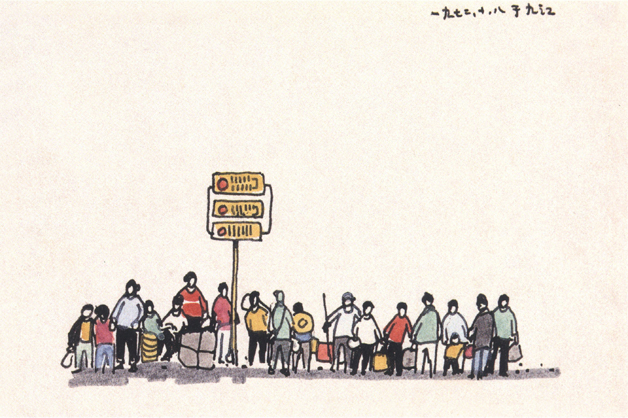 一九七二.十.八 于九江